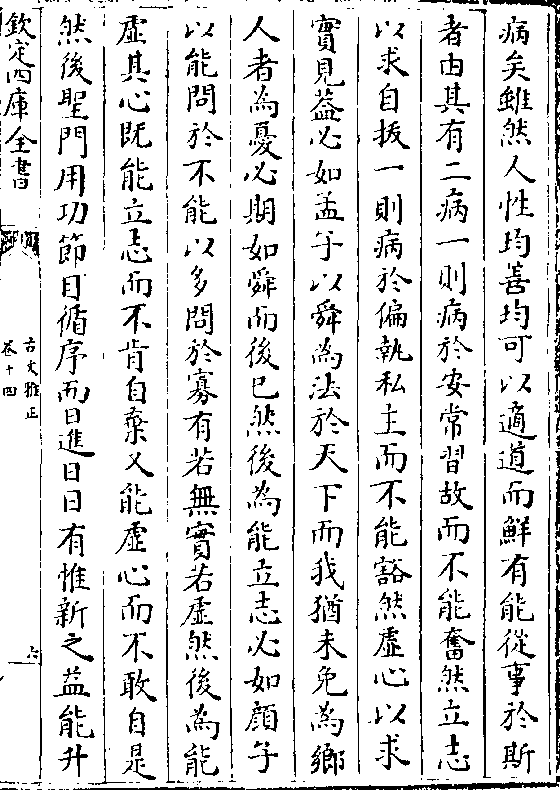 病矣雖然人性均善均可以適道而鮮有能從事於斯
者由其有二病一則病於安常習故而不能奮然立志
以求自拔一則病於偏執私主而不能豁然虛心以求
實見葢必如孟子以舜為法於天下而我猶未免為鄉
人者為憂必期如舜而後已然後為能立志必如顔子
以能問於不能以多問於寡有若無實若虛然後為能
虛其心既能立志而不肯自棄又能虛心而不敢自是
然後聖門用功節目循序而日進日日有惟新之益能升
欽定四庫全書
古文雅正
卷十四
六